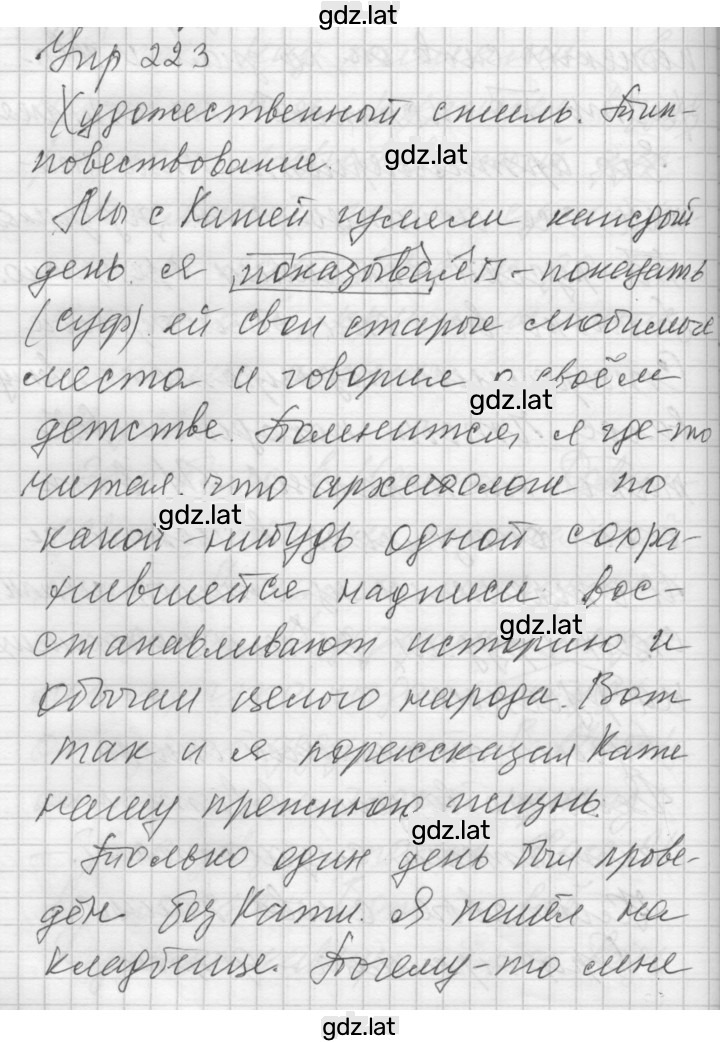 gdz.lat
Упр 223
Художественный стиль. Тип-
повествование.
gdz.lat
Мы с Катей гуляли каждый
день. я показывал - показать
(суф). ей свои старые любимые
места и говорил о своём
gdz.lat
детстве. Помнится, я где-то
читал. что археологи по
gdz.lat
какой-нибудь одной сохра-
нившейся надписи вос-
gdz.lat
станавливают историю и
обычаи целого народа. Вот
так и я порассказал Кате
нашу прежнюю жизнь.
gdz.lat
Только один день был прове-
дён без Кати. Я пошёл на
кладбище. Почему-то мне
gdz.lat